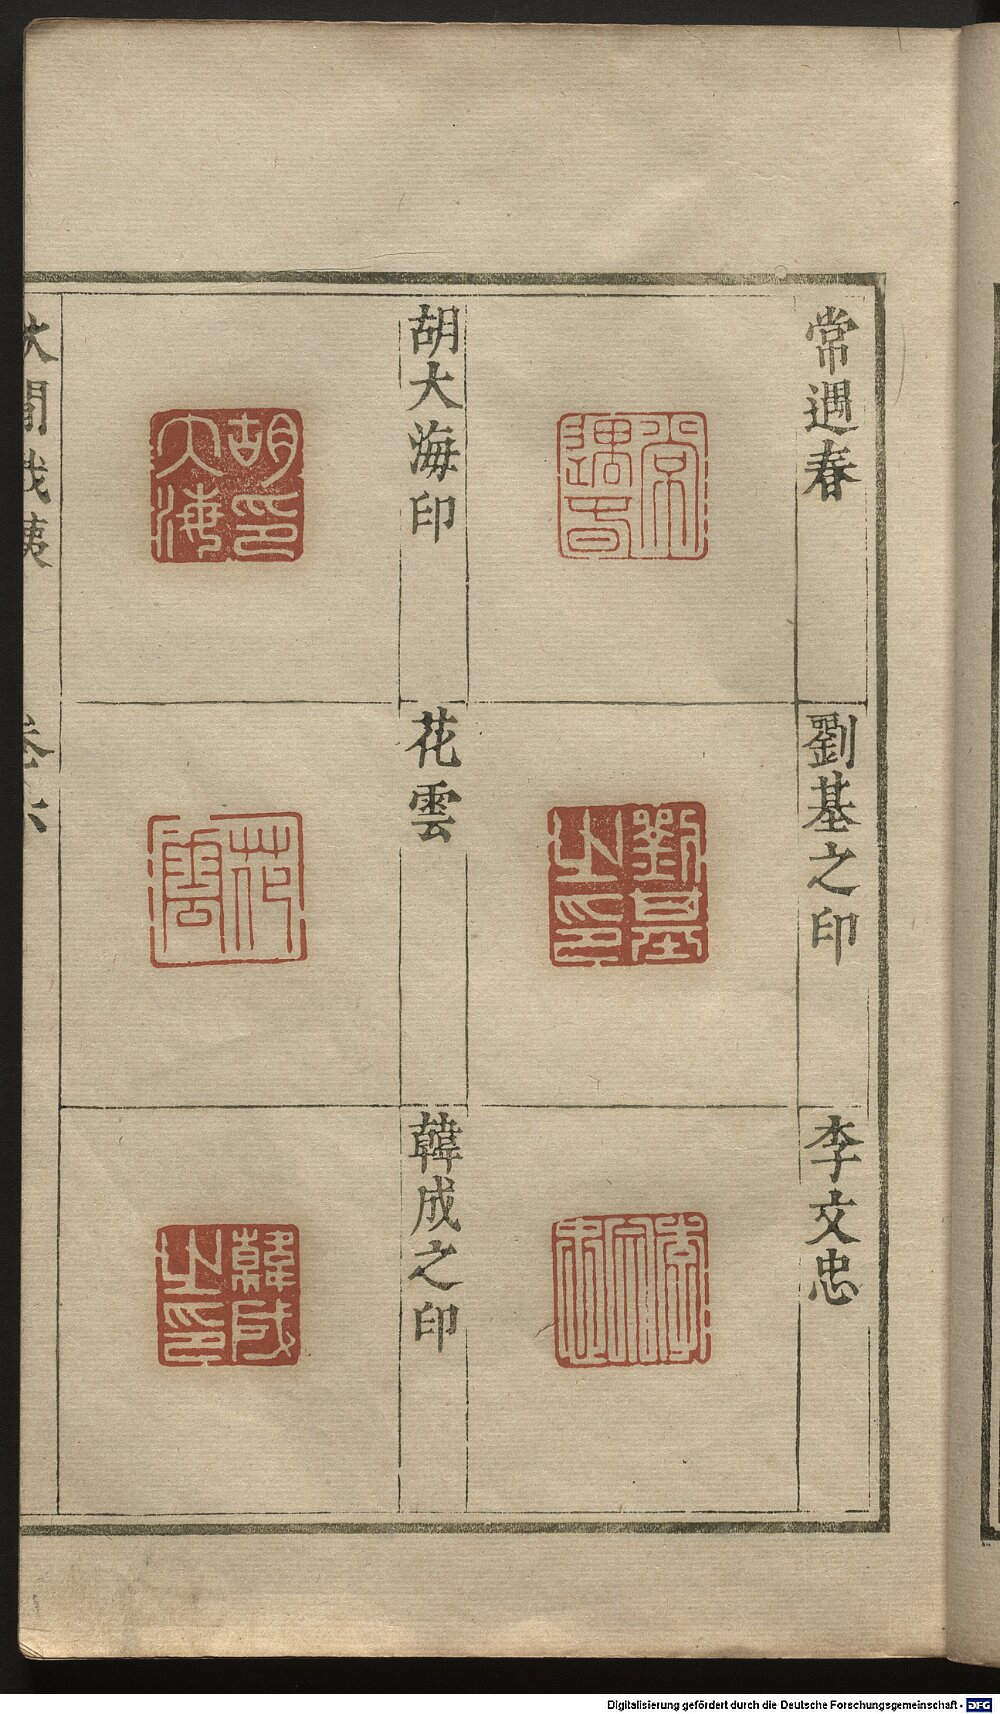 常遇春
常遇春
劉基之印
劉基之印
李文忠
李文忠
胡大海印
胡大海印
花雲
花雲
韓成之印
韓成之印
卷六
Digitalisierung gefördert durch die Deutsche Forschungsgemeinschaft - DFG